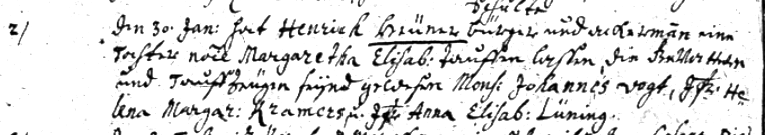 Schulte
2/ den 30. Jan: hat Henrich Brüner bürger und ackerman eine
Tochter noīe Margaretha Elisab: tauffen lassen, die
und Tauffzeugen seynd gewesen Mons: Johannes Vogt, Jfr. He-
lena Margar: Kramers u. Jfr. Anna Elisab: Lüning.